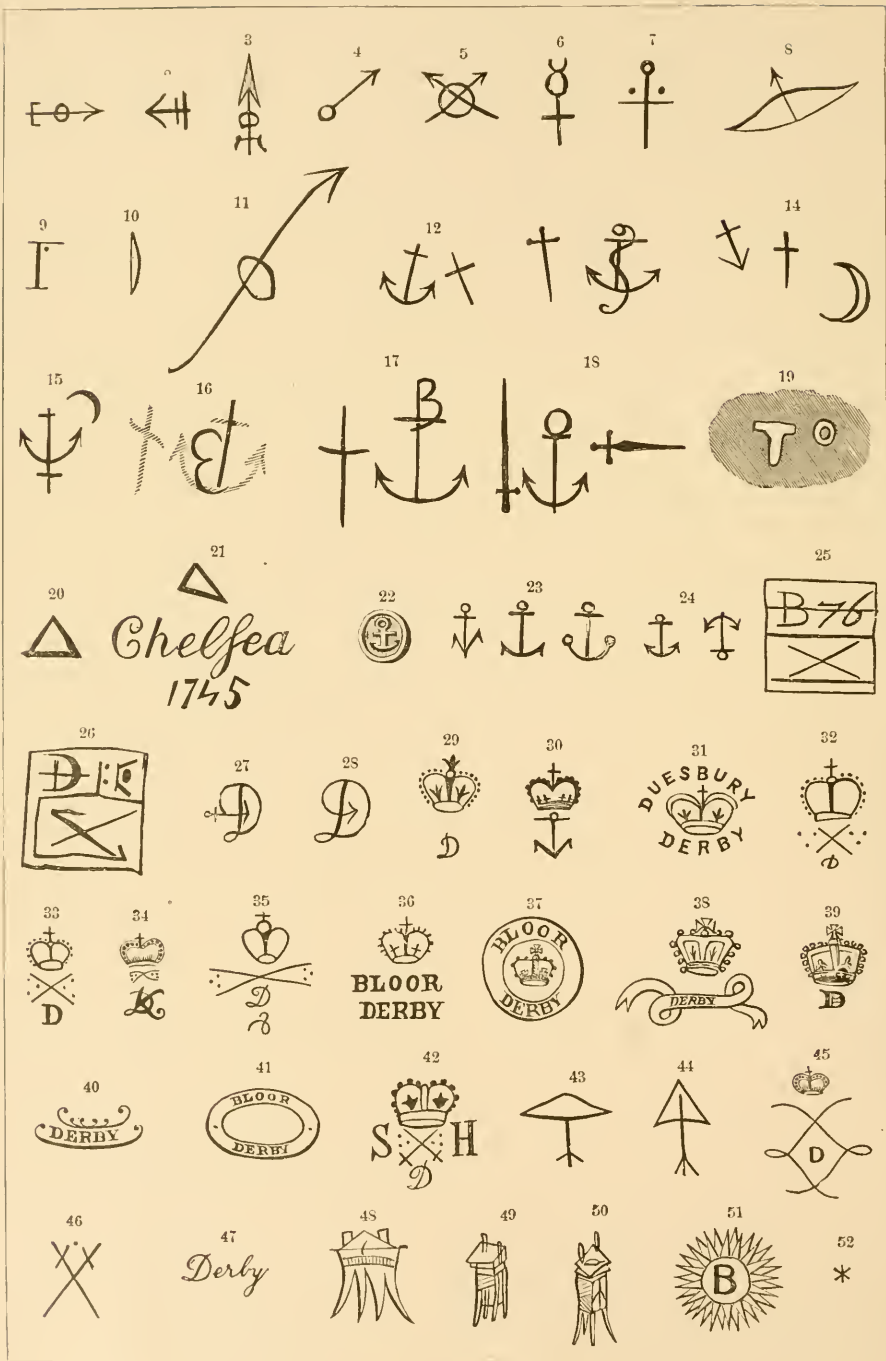 3 4 5 6 7 8
9 10 11 12 14
15 16 17 18 19
B
T
20 21 22 23 24 25
Chelsea
1745
B 76
26 27 28 29 30 31 32
D
D
D
D
DUESBURY
DERBY
D
33 34 35 36 37 38 39
D
D
BLOOR
DERBY
BLOOR
DERBY
DERBY
D
40 41 42 43 44 45
DERBY
BLOOR
DERBY
S H
D
D
46 47 48 49 50 51 52
Derby
B